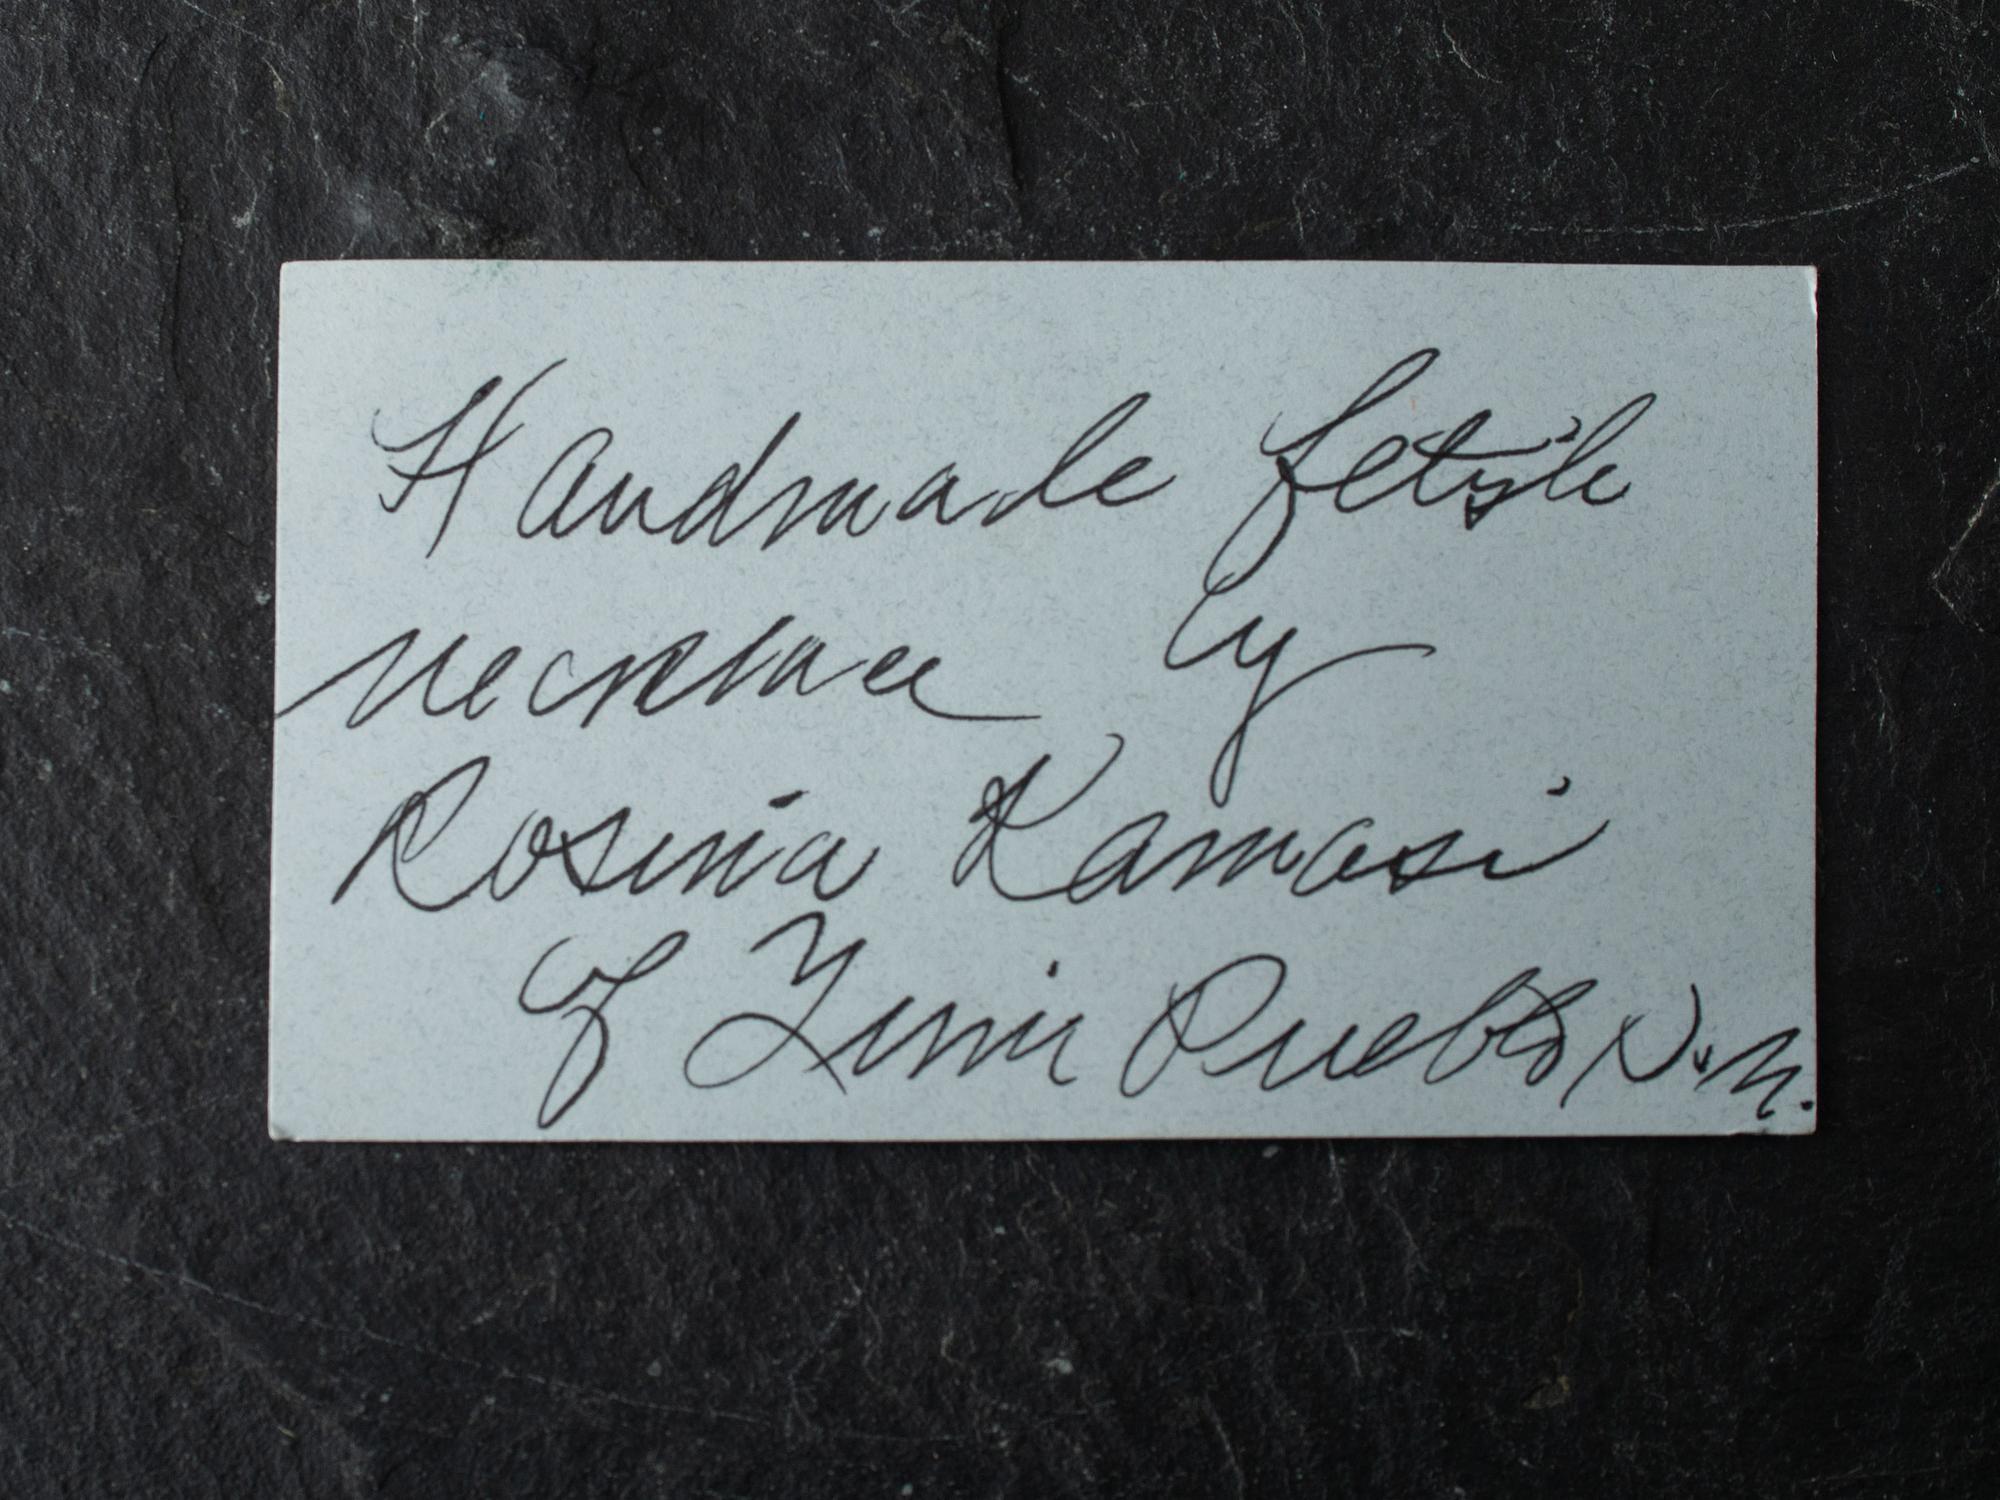 Handmade fetish
necklace by
Rosina Kamasi
of Zuni Pueblo N.M.